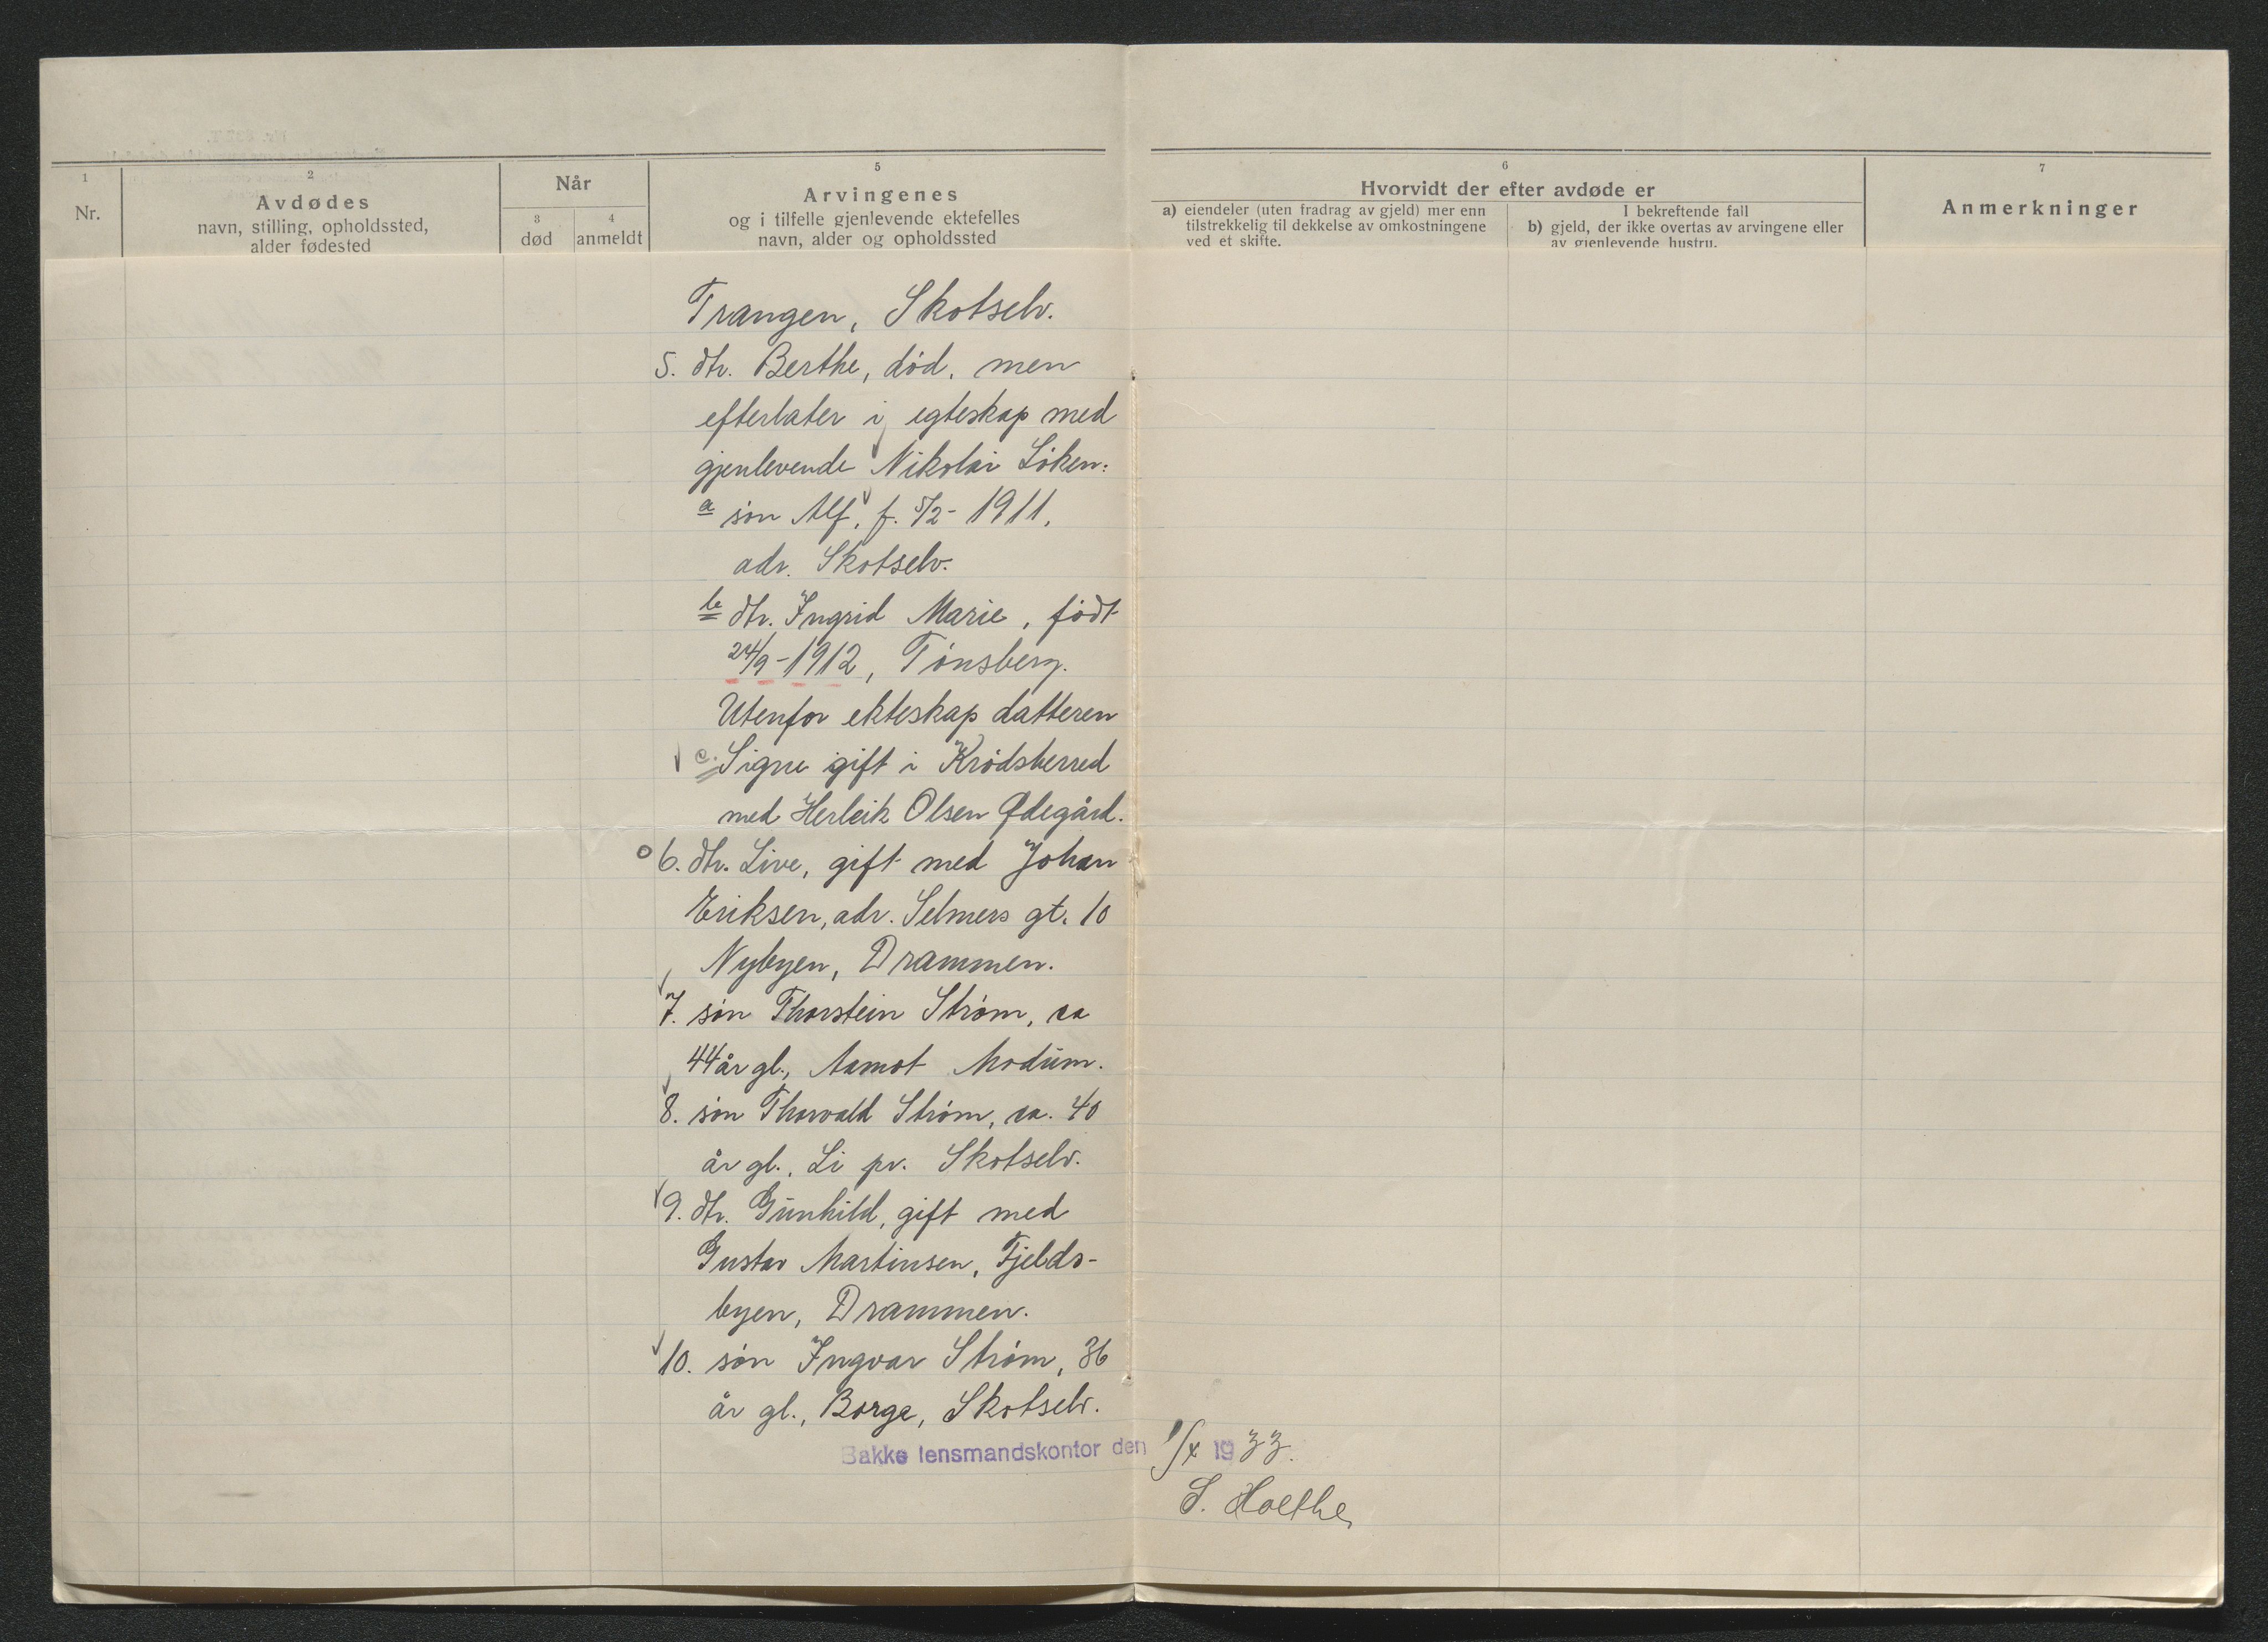 1
Nr.
2
Avdødes
navn, stilling, opholdssted,
alder fødested
Når
3
død
4
anmeldt
5
Arvingenes
og i tilfelle gjenlevende ektefelles
navn, alder og opholdssted
6
Hvorvidt der efter avdøde er
a) eiendeler (uten fradrag av gjeld) mer enn
tilstrekkelig til dekkelse av omkostningene
ved et skifte.
I bekreftende fall
b) gjeld, der ikke overtas av arvingene eller
av gjenlevende hustru.
7
Anmerkninger
Trangen, Skotselv.
5. dtr. Berthe, død, men
efterlater i egteskap med
gjenlevende Nikolai Løken:
a søn Alf, f. 5/2-1911,
adr. Skotselv.
b dtr. Ingrid Marie, født
24/9-1912, Tønsberg.
Utenfor ekteskap datteren
c. Signe gift i Krødsherred
med Herleik Olsen Ødegård.
6. dtr. Live, gift med Johan
Eriksen, adr. Selmers gt. 10
Nybyen, Drammen.
7. søn Thorstein Strøm, ca
44 år gl., Aamot Modum.
8. søn Thorvald Strøm, ca. 40
år gl., Li pr. Skotselv.
9. dtr. Gunhild, gift med
Gustav Martinsen, Fjelds-
byen, Drammen.
10. søn Ingvar Strøm, 36
år gl., Borge, Skotselv.
Bakke lensmandskontor den 1/x 1933.
S. Holthe